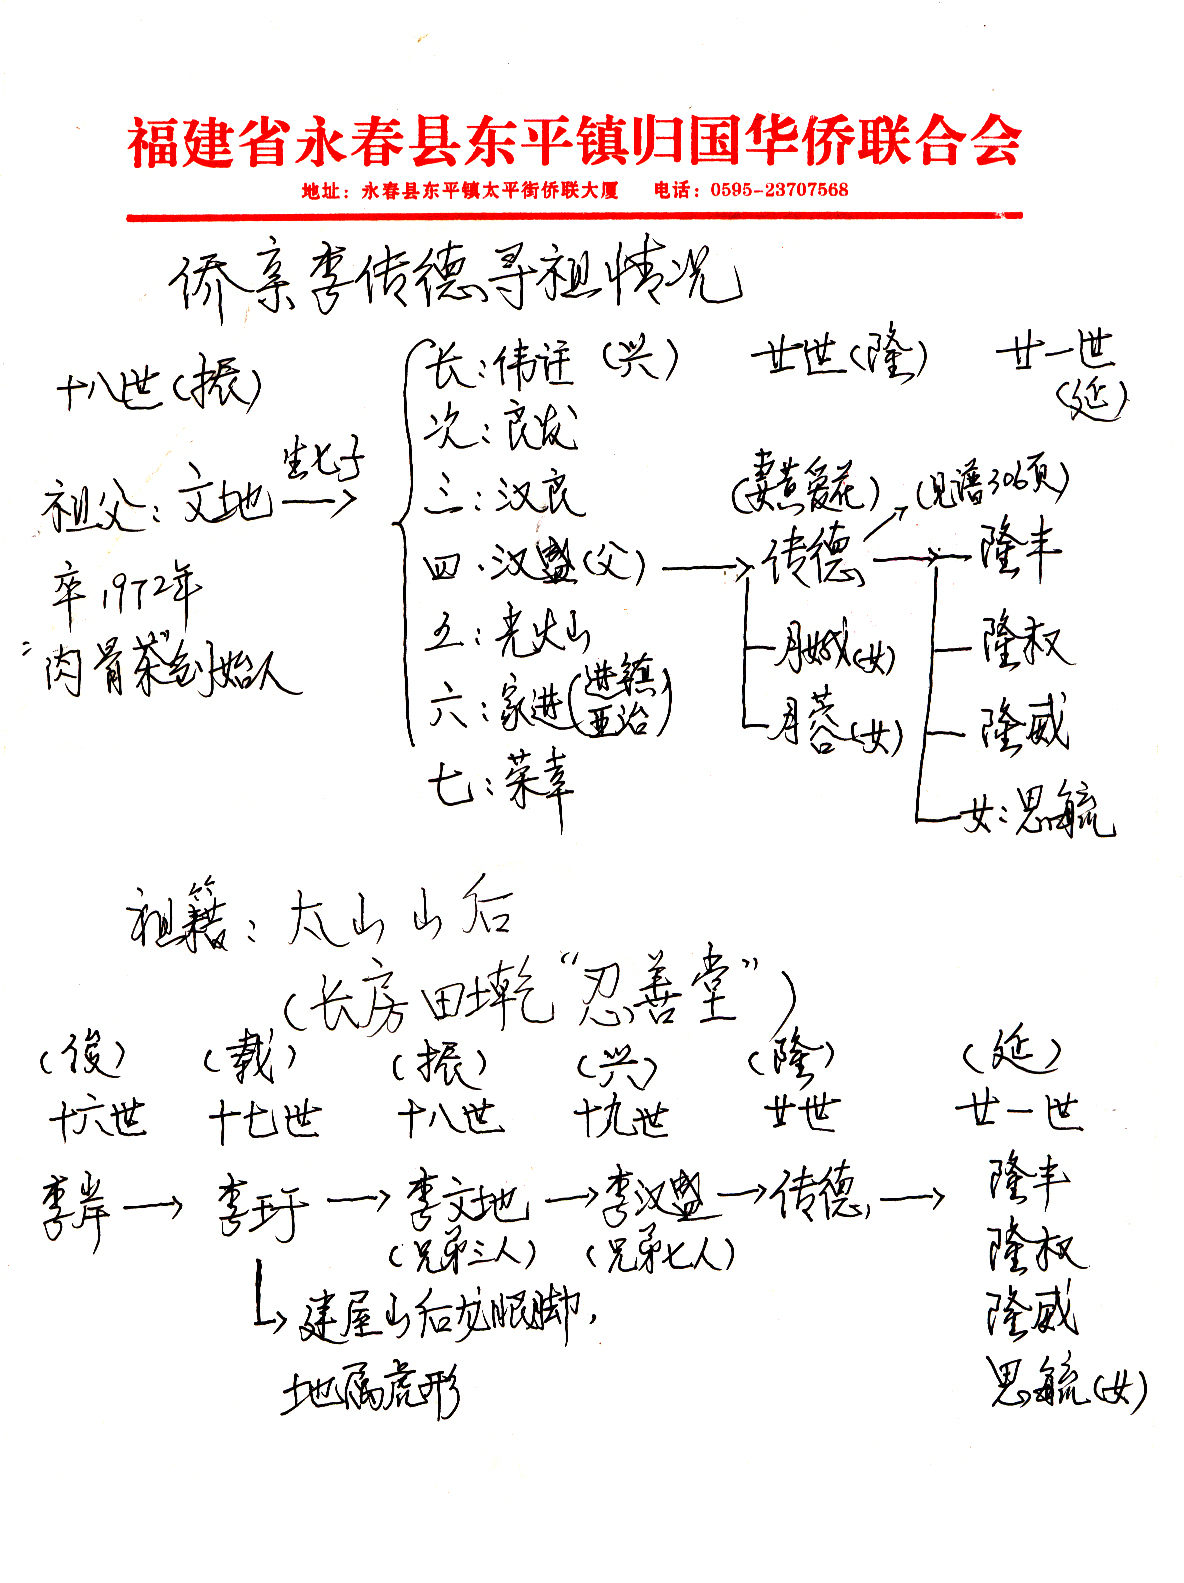 福建省永春县东平镇归国华侨联合会
地址：永春县东平镇太平街侨联大厦 电话：0595-23707568
侨亲李传德寻祖情况
十八世（振）
祖父：文地 生七子
卒1972年
“肉骨茶”创始人
长：伟 （兴）
次：良发
三：汉良
四：汉盛（父）
五：光火山
六：家进（进镇 亚治）
七：荣幸
廿世（隆）
（妻黄爱花）
传德
月娥（女）
月蓉（女）
廿一世
（延）
（见谱306页）
隆丰
隆权
隆威
女：思毓
祖籍：太山山后
（长房田墘“忍善堂”）
（俊） （载） （振） （兴） （隆） （延）
十六世 十七世 十八世 十九世 廿世 廿一世
李岸 李玗 李文地 李汉盛 传德 隆丰
（兄弟三人） （兄弟七人） 隆权
建屋山后龙眼脚， 隆威
地属虎形 思毓（女）